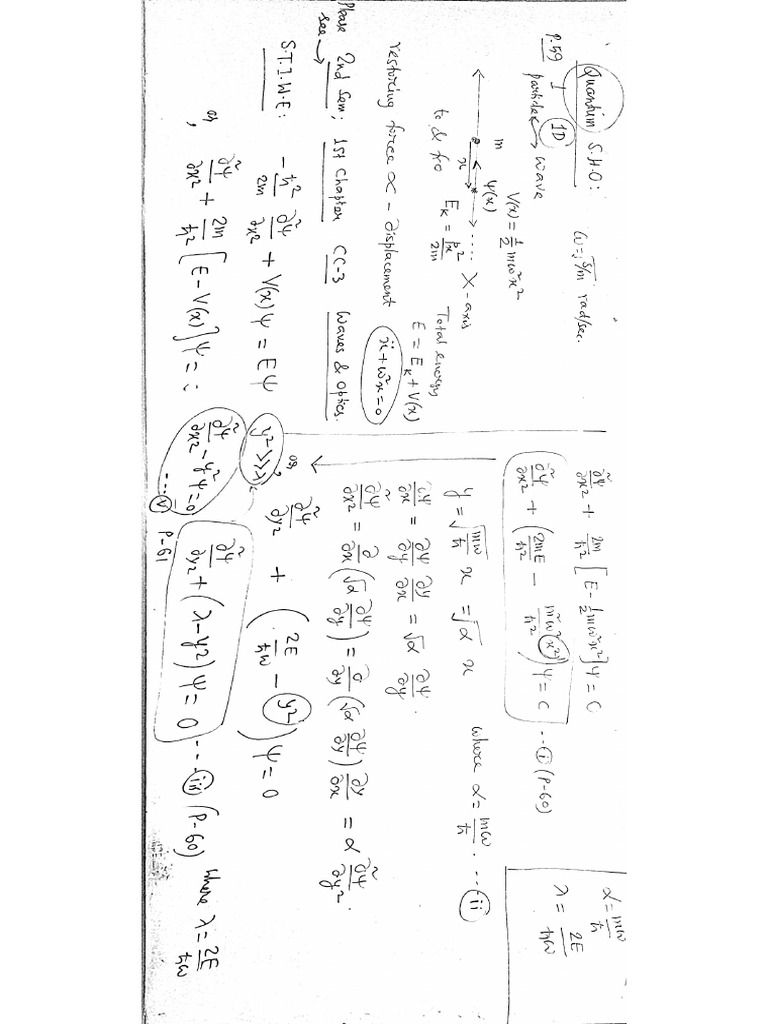 Quantum S.H.O:
ω = √s/m rad/sec.
P.59 1 1D
particle → wave
V(x) = ½mω²x²
m ψ(x)
x .... X-axis
to & fro E_K = p_x²/2m
Total energy
E = E_K + V(x)
restoring force ∝ - displacement
ẍ + ω²x = 0
Please see → 2nd Sem; 1st Chapter CC-3 Waves & Optics.
S.T.I.W.E: -ħ²/2m ∂²ψ/∂x² + V(x)ψ = Eψ
or, ∂²ψ/∂x² + 2m/ħ² [E - V(x)]ψ = :
∂²ψ/∂x² + 2m/ħ² [E - ½mω²x²]ψ = 0
∂²ψ/∂x² + (2mE/ħ² - m²ω²x²/ħ²)ψ = 0 --- (i) (P-60)
α = mω/ħ
λ = 2E/ħω
y = √(mω/ħ) x = √α x where α = mω/ħ. --- (ii)
∂ψ/∂x = ∂ψ/∂y ∂y/∂x = √α ∂ψ/∂y.
∂²ψ/∂x² = ∂/∂x (√α ∂ψ/∂y) = ∂/∂y (√α ∂ψ/∂y) ∂y/∂x = α ∂²ψ/∂y².
or, ∂²ψ/∂y² + (2E/ħω - y²)ψ = 0
y² >>> λ
∂²ψ/∂y² + (λ - y²)ψ = 0 --- (iii) (P-60) where λ = 2E/ħω
∂²ψ/∂x² - y²ψ = 0 --- (v) P-61